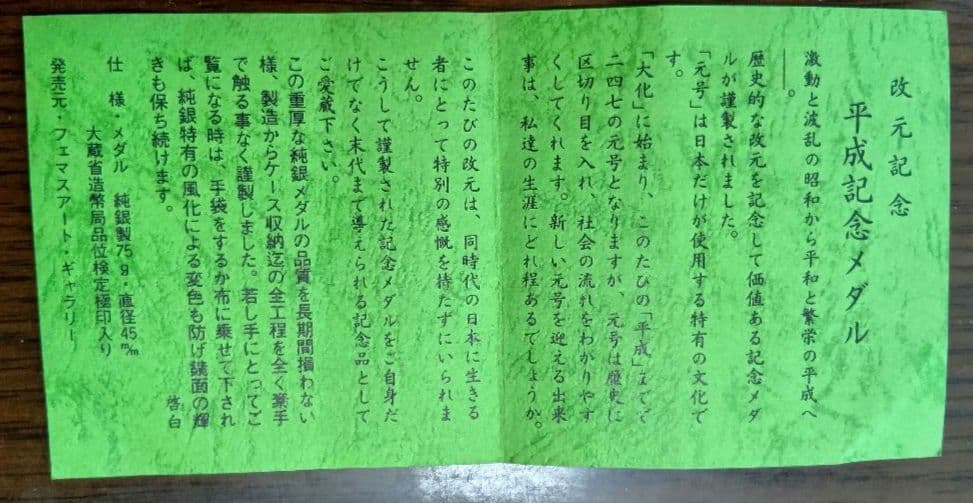 改元記念
平成記念メダル
激動と波乱の昭和から平和と繁栄の平成へ
──。
歴史的な改元を記念して価値ある記念メダ
ルが謹製されました。
「元号」は日本だけが使用する特有の文化で
す。
「大化」に始まり、このたびの「平成」までで
二四七の元号となりますが、元号は歴史に
区切り目を入れ、社会の流れをわかりやす
くしてくれます。新しい元号を迎える出来
事は、私達の生涯にどれ程あるでしょうか。
このたびの改元は、同時代の日本に生きる
者にとって特別の感慨を持たずにいられま
せん。
こうして謹製された記念メダルをご自身だ
けでなく末代まで導えられる記念品として
ご愛蔵下さい。
この重厚な純銀メダルの品質を長期間損わない
様、製造からケース収納迄の全工程を全く素手
で触る事なく謹製しました。若し手にとってご
覧になる時は、手袋をするか布に乗せて下され
ば、純銀特有の風化による変色も防げ鏡面の輝
きも保ち続けます。
啓白
仕様・メダル 純銀製75g・直径45m/m
大蔵省造幣局品位検定極印入り
発売元・フェマスアート・ギャラリー